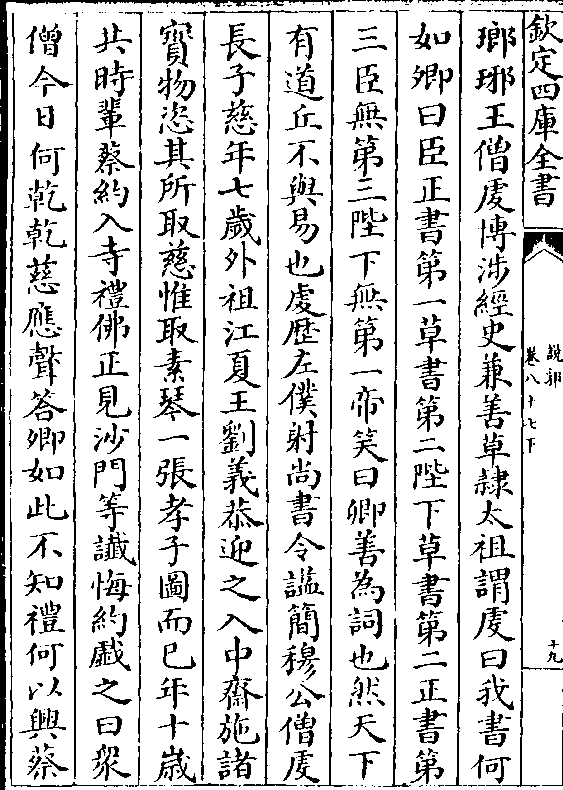 欽定四庫全書
說郛
卷八十七下
十九
瑯琊王僧虔博涉經史兼善草隷太祖謂虔曰我書何
如卿曰臣正書第一草書第二陛下草書第二正書第
三臣無第三陛下無第一帝笑曰卿善為詞也然天下
有道丘不與易也虔歴左僕射尚書令謚簡穆公僧虔
長子慈年七歲外祖江夏王劉義恭迎之入中齋施諸
寳物恣其所取慈惟取素琴一張孝子圖而已年十歳
共時輩蔡約入寺禮佛正見沙門等讖悔約戯之曰衆
僧今日何乾乾慈應聲答卿如此不知禮何以興蔡